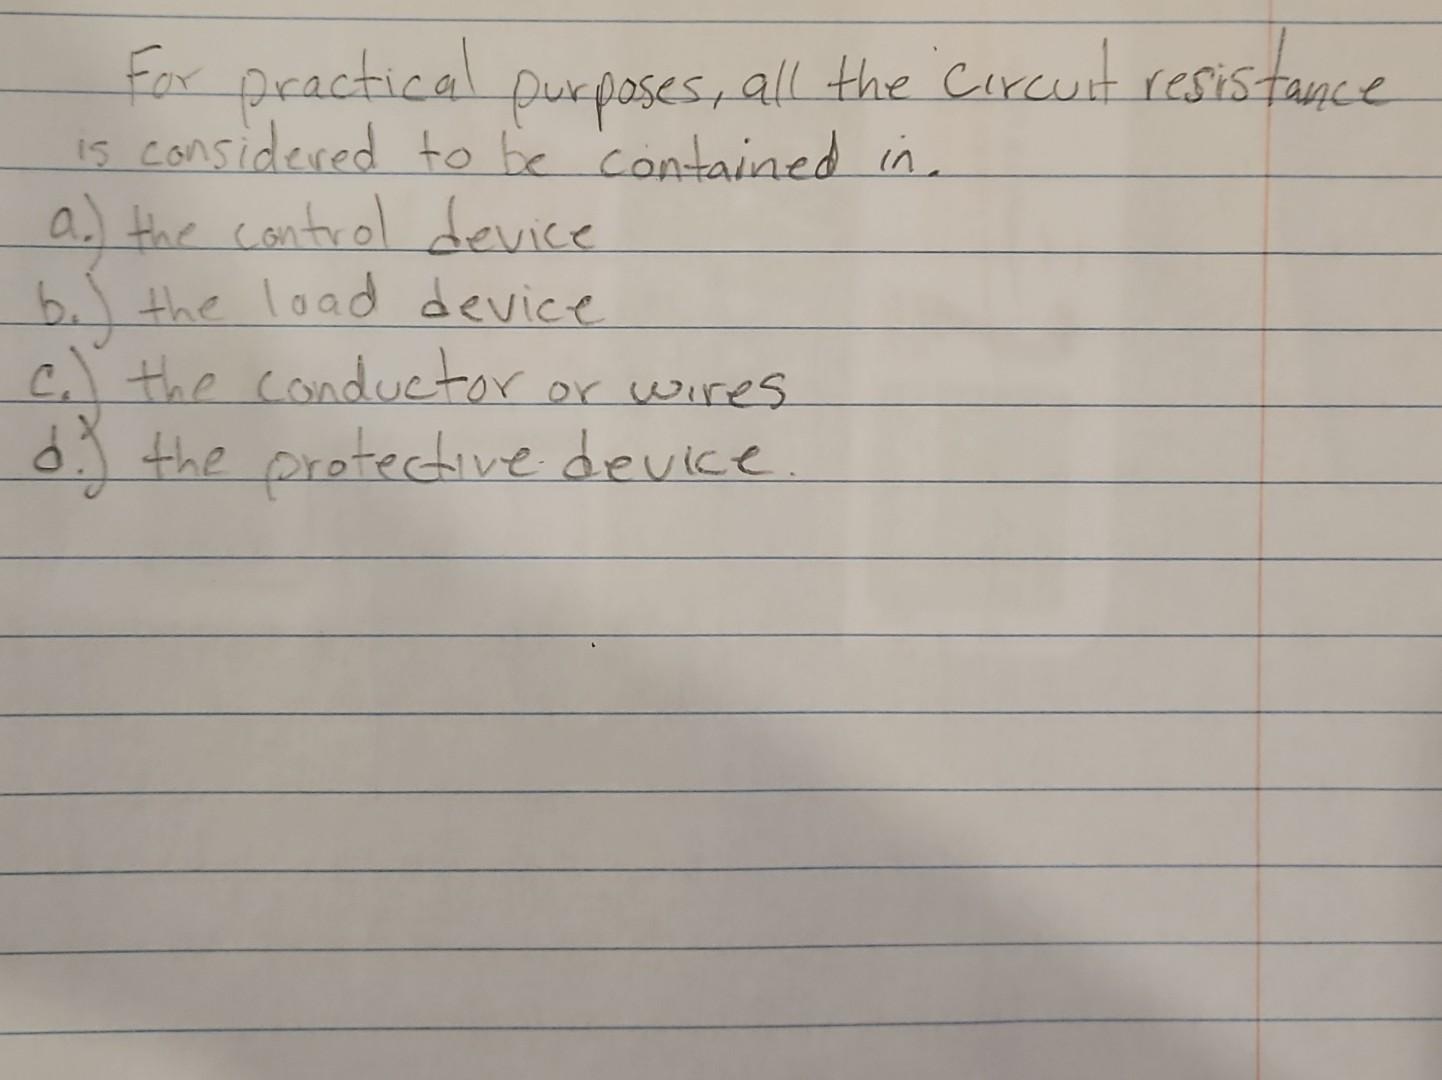 For practical purposes, all the circuit resistance
is considered to be contained in.
a.) the control device
b.) the load device
c.) the conductor or wires
d.) the protective device.